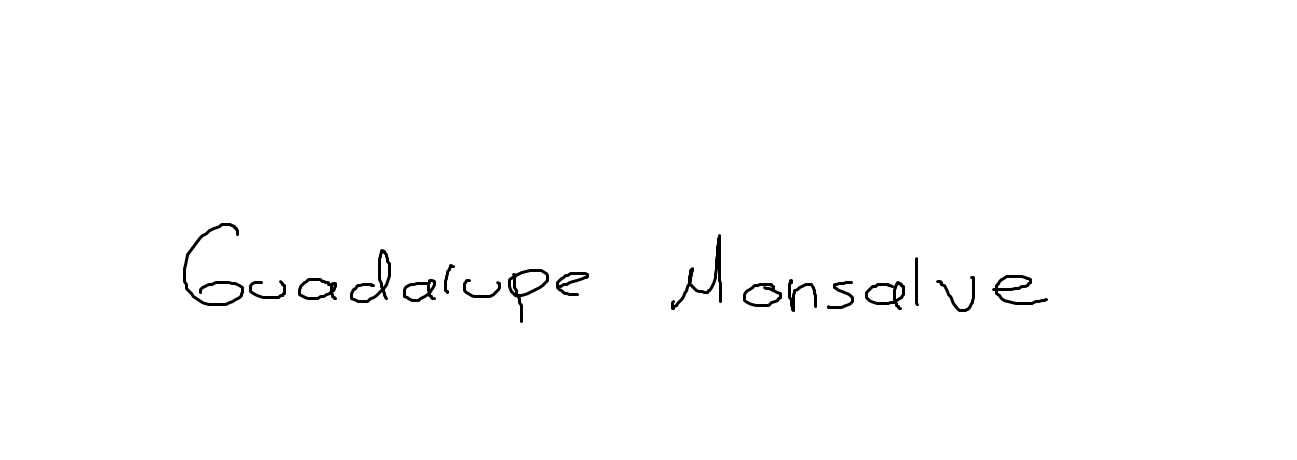 Guadalupe Monsalve